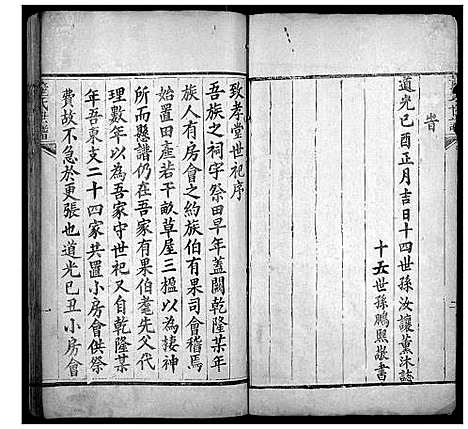 旹
道光己酉正月吉日十四世孫汝讓薰沐誌
十五世孫鵬熙敬書
二
致孝堂世祀序
吾族之祠宇祭田早年蓋闕乾隆某年
族人有房會之約族伯有果司會稽焉
始置田產若干畝草屋三楹以為棲神
所而懸譜仍在吾家有果伯耄先父代
理數年以為吾家守世祀又自乾隆某
年吾東支二十四家共置小房會供祭
費故不急於更張也道光己丑小房會
氏世譜
一